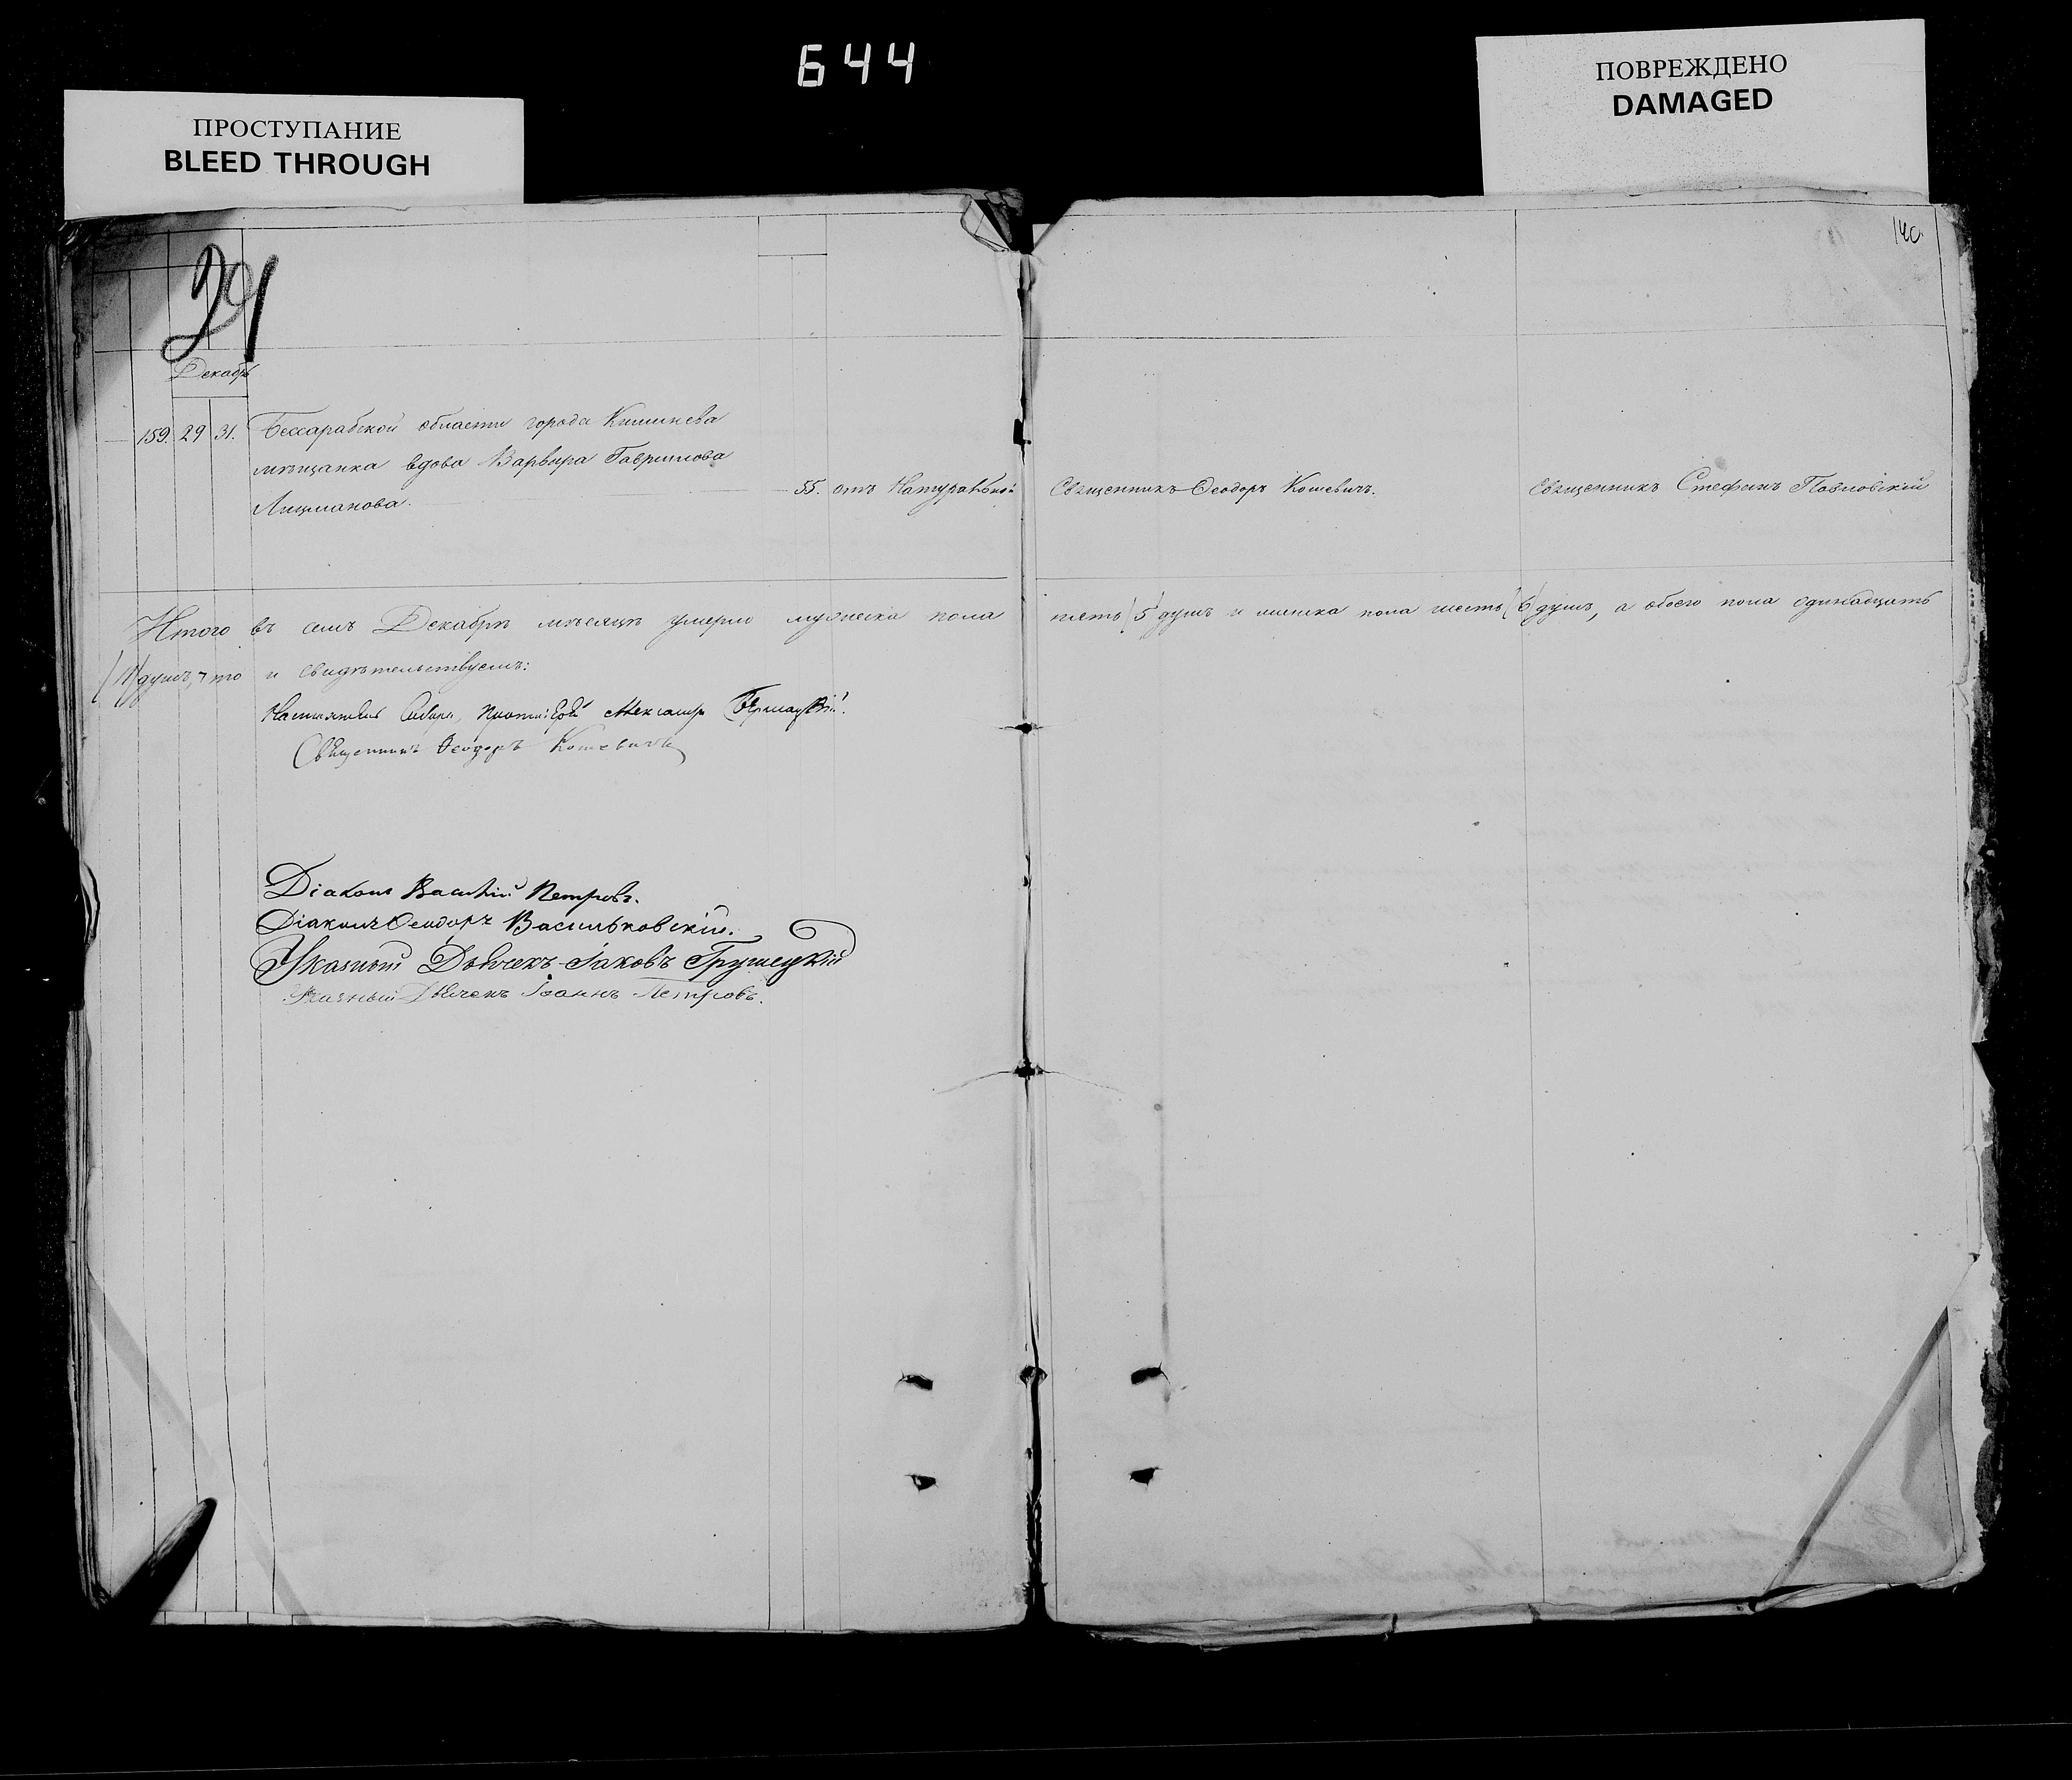 644
ПРОСТУПАНИЕ
BLEED THROUGH
ПОВРЕЖДЕНО
DAMAGED
140.
Декабрь
159. 29 31. Бессарабской области города Кишинева
мѣщанка вдова Варвара Гаврилова
55. отъ Натуральной Священникъ Ѳеодоръ Кошевичъ. Священникъ Стефанъ Павловскій
Итого въ семъ Декабрѣ мѣсяцѣ умерло мужеска пола пять (5) душъ и женска пола шесть (6) душъ, а обоего пола одинадцать
(11) душъ, что и свидѣтельствуемъ:
Настоятель Собора, Протоіерей Александръ
Священникъ Ѳеодоръ Кошевичъ
Діаконъ Василій Петровъ.
Діаконъ Ѳеодоръ Васильковскій.
Указный Дьячекъ Іаковъ Грушецкій
Указный Дьячекъ Іоаннъ Петровъ.